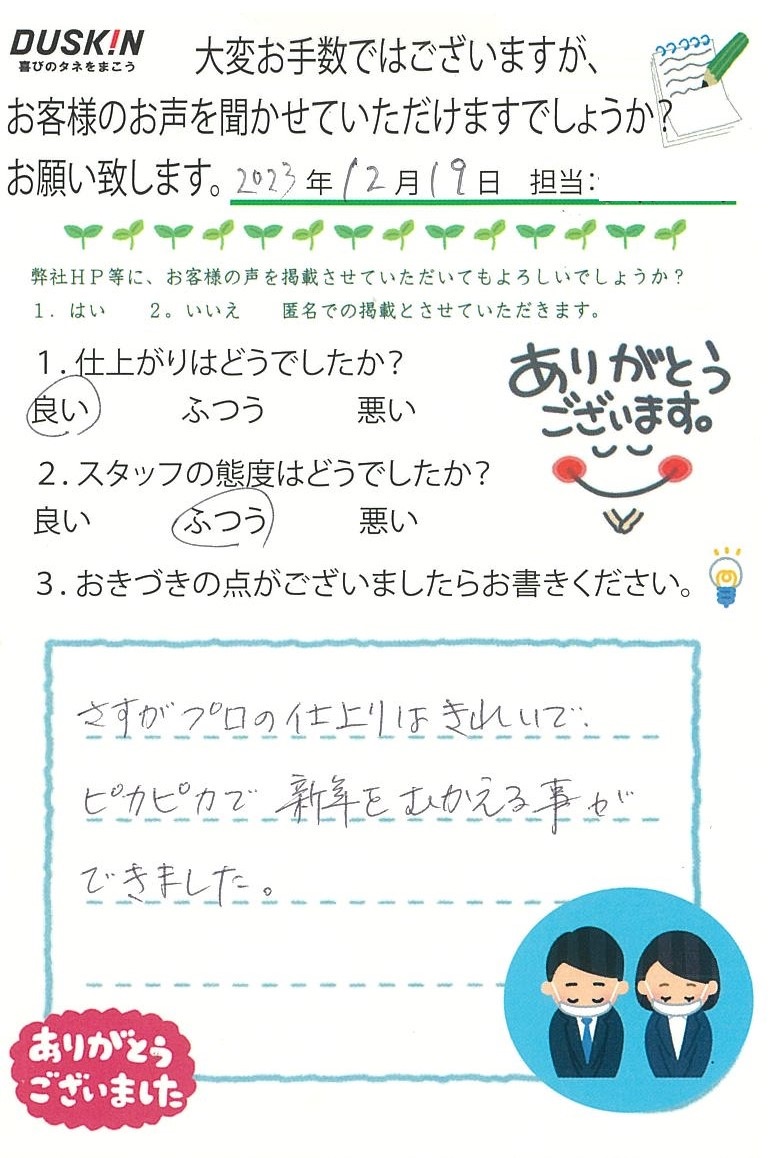 DUSK!N
喜びのタネをまこう
大変お手数ではございますが、
お客様のお声を聞かせていただけますでしょうか?
お願い致します。2023年12月19日 担当:
弊社HP等に、お客様の声を掲載させていただいてもよろしいでしょうか?
1. はい 2。いいえ 匿名での掲載とさせていただきます。
1. 仕上がりはどうでしたか?
良い ふつう 悪い
ありがとう
ございます。
2. スタッフの態度はどうでしたか?
良い ふつう 悪い
3. おきづきの点がございましたらお書きください。
さすがプロの仕上りはきれいで、
ピカピカで新年をむかえる事が
できました。
ありがとう
ございました